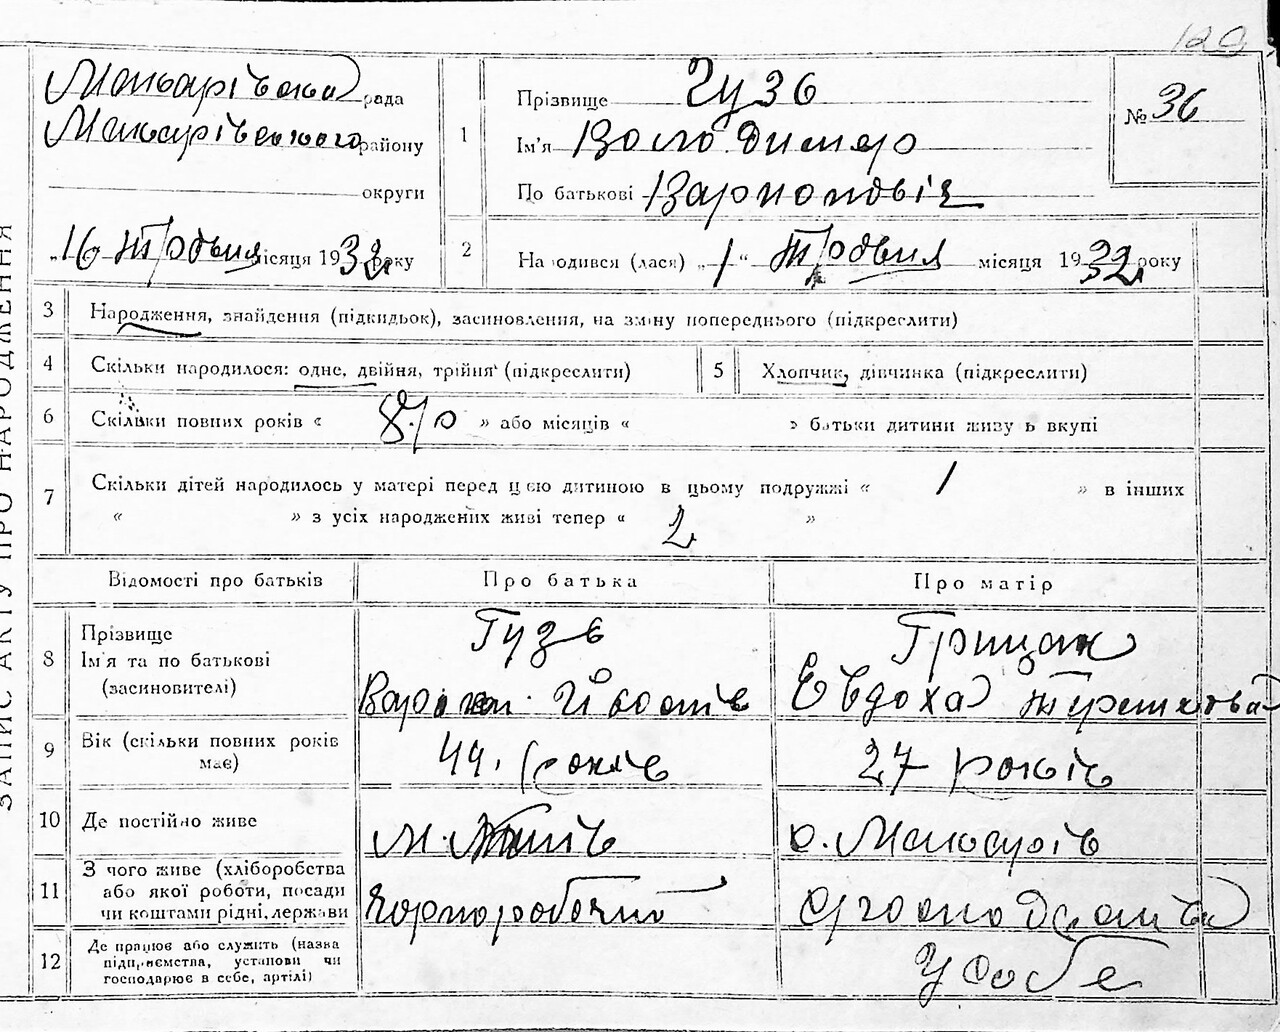 120
Макарівська рада
Макарівського району
округи
„16 Травня місяця 1932 року
1
Прізвище Гузь
Ім'я Володимер
По батькові
№ 36
2
На одився (лася) „1“ Травня місяця 1932 року
3 Народження, знайдення (підкидьок), засиновлення, на зміну попереднього (підкреслити)
4 Скільки народилося: одне, двійня, трійня (підкреслити)
5 Хлопчик, дівчинка (підкреслити)
6 Скільки повних років « » або місяців « » батьки дитини живу ь вкупі
7 Скільки дітей народилось у матері перед цією дитиною в цьому подружжі « 1 » в інших
« » з усіх народжених живі тепер « 2 »
Відомості про батьків
Про батька
Про матір
8 Прізвище
Ім'я та по батькові
(засиновителі)
Гузь
Грицак
Євдоха
9 Вік (скільки повних років
має)
44. років
27 років
10 Де постійно живе
м. Київ
с. Макарів
11 З чого живе (хліборобства
або якої роботи, посади
чи коштами рідні, держави
Чорноробочий
12 Де працює або служить (назва
підприємства, установи чи
господарює в себе, артілі)
У собе
ЗАПИС АКТУ ПРО НАРОДЖЕННЯ